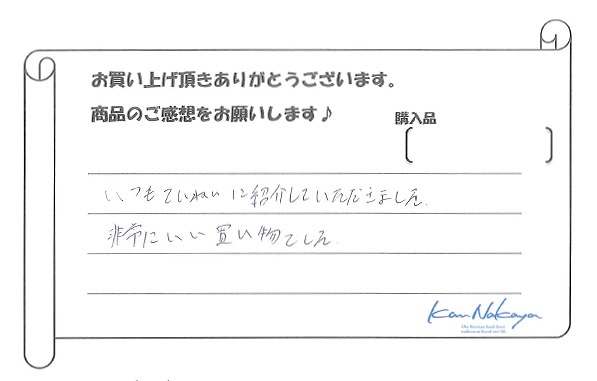 お買い上げ頂きありがとうございます。
商品のご感想をお願いします♪
購入品
いつもていねいに紹介していただきました。
非常にいい買い物でした。
Kan Nakaya